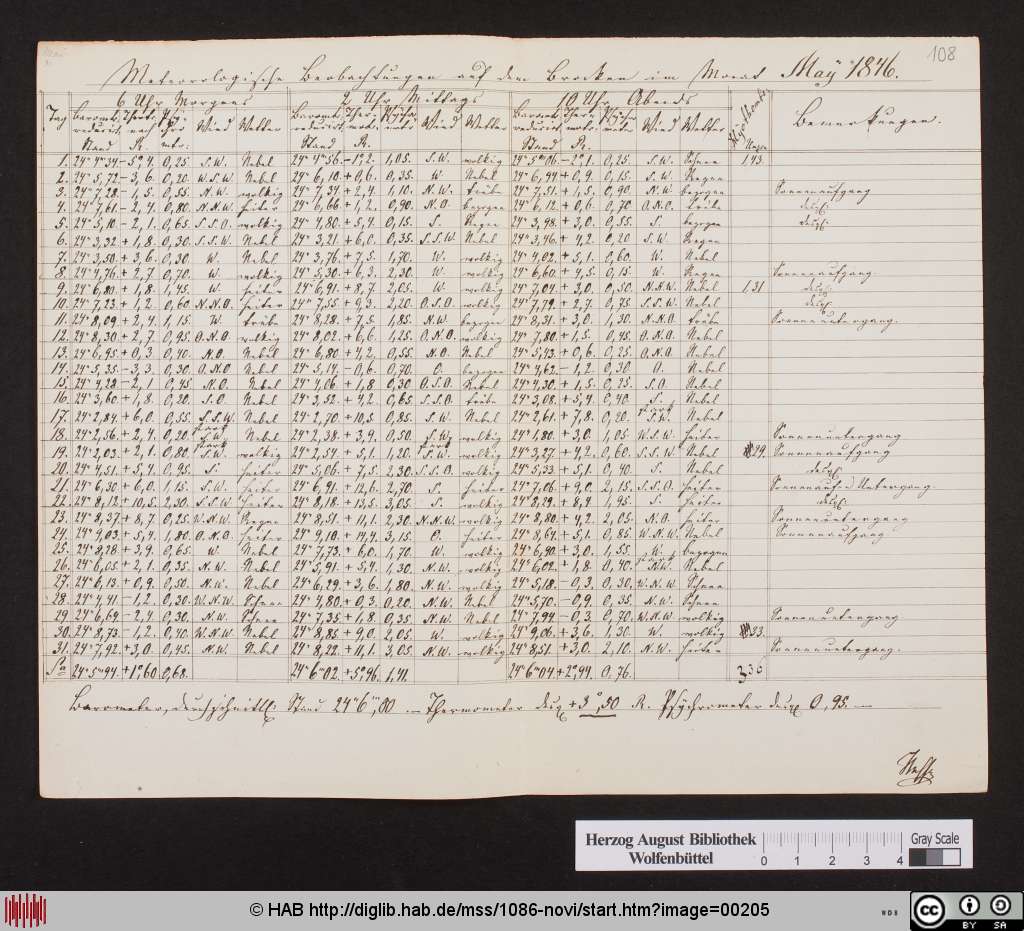 108
Meteorologische Beobachtungen auf dem Brocken im Monat May 1846.
6 Uhr Morgens 2 Uhr Mittags 10 Uhr Abends
Tag Baromt. reducirt. Stand Therm. nach R. Psychro mtr. Wind Wetter Baromt. reducirt. Stand Thermomt. R. Wind Wetter Baromt. reducirt Stand Thermomtr. R. Wind Wetter Bemerkungen.
1. 24" 4'''34 - 5°4. 0,25 S.W. Nebel 24" 4'''56. - 1°2. 1,05. S.W. wolkig 24" 5'''06. - 2°1. 0,25. S.W. Schnee 143.
2. 24" 5,72 - 3,6. 0,20. W.S.W. Nebel 24" 6,10 + 0,6. 0,35. W. Nebel 24" 6,44 + 0,9. 0,15. S.W. Regen
3. 24" 7,28 - 1,5. 0,55. N.W. wolkig 24" 7,34 + 2,4. 1,10. N.W. trübe 24" 7,51. + 1,5. 0,90. N.W. bezogen Sonnenaufgang
4. 24" 7,61 - 2,4. 0,80. N.N.W. heiter 24" 6,66 + 1,2. 0,90. N.O. bezogen 24" 6,12 + 0,6. 0,70 O.N.O. trübe desgl.
5. 24" 5,10 - 2,1. 0,65. S.S.O. wolkig 24" 4,80 + 5,4. 0,15. S. Regen 24" 3,98. + 3,0. 0,55. S. bezogen desgl.
6. 24" 3,32 + 1,8. 0,30. S.S.W. Nebel 24" 3,21. + 6,0. 0,35. S.S.W. Nebel 24" 3,46. + 4,2. 0,20 S.W. Regen
7. 24" 3,50. + 3,6. 0,30 W. Nebel 24" 3,76. + 7,5. 1,70. W. wolkig 24" 4,02. + 5,1. 0,60. W. Nebel
8. 24" 4,76. + 2,7 0,70. W. wolkig 24" 5,30. + 6,3. 2,30. W. wolkig 24" 6,60. + 4,5. 0,15. W. Regen Sonnenaufgang.
9. 24" 6,80. + 1,8. 1,45. W. heiter 24" 6,91. + 8,7. 2,05. W. wolkig 24" 7,04. + 3,0. 0,50. N.N.W. Nebel 131 desgl.
10. 24" 7,23. + 1,2. 0,60 N.N.O. heiter 24" 7,55 + 9,3. 2,20. O.S.O. wolkig 24" 7,79. + 2,7. 0,75 S.S.W. Nebel desgl.
11. 24" 8,09. + 2,4. 1,15. W. trübe 24" 8,28. + 7,5. 1,85. N.W. bezogen 24" 8,31. + 3,0. 1,30. N.N.O. trübe Sonnenuntergang.
12. 24" 8,30 + 2,7. 0,95. O.N.O. wolkig 24" 8,02. + 6,6. 1,25. O.N.O. wolkig 24" 7,80. + 1,5. 0,45. O.N.O. Nebel
13. 24" 6,95 + 0,3 0,40. N.O. Nebel 24" 6,80 + 4,2. 0,55. N.O. Nebel 24" 5,43. + 0,6. 0,25. O.N.O. Nebel
14. 24" 5,35. - 3,3 0,30 O.N.O Nebel 24" 5,14. - 0,6. 0,70. O. bezogen 24" 4,62. - 1,2. 0,30 O. Nebel
15. 24" 4,28 - 2,1 0,45 N.O. Nebel 24" 4,06 + 1,8 0,30 O.S.O. Nebel 24" 4,30. + 1,5. 0,25. S.O. Nebel
16. 24" 3,60 + 1,8. 0,20. S.O. Nebel 24" 3,52. + 4,2. 0,65. S.S.O. trübe 24" 3,08. + 5,4 0,40 S. Nebel
17. 24" 2,84. + 6,0. 0,55. S.S.W. Nebel 24" 2,70 + 10,5. 0,85. S.W. Nebel 24" 2,61. + 7,8. 0,20. stark S.W. Nebel
18. 24" 2,56. + 2,4. 0,20. stark S.W. Nebel 24" 2,38. + 3,9. 0,50. S.W. wolkig 24" 1,80. + 3,0. 1,05. W.S.W. heiter Sonnenuntergang
19. 24" 2,03. + 2,1. 0,80 stark S.W. wolkig 24" 2,54. + 5,1. 1,20. stark S.W. wolkig 24" 3,27 + 4,2. 0,60. S.S.W. Nebel 29. Sonnenaufgang
20. 24" 4,51. + 5,4. 0,95. S. heiter 24" 5,06. + 7,5. 2,30. S.S.O. wolkig 24" 5,33 + 5,1. 0,40. S. Nebel desgl.
21. 24" 6,30 + 6,0. 1,15. S.W. heiter 24" 6,91. + 12,6. 2,70. S. heiter 24" 7,06. + 9,0. 2,15. S.S.O. heiter Sonnenauf u. Untergang.
22. 24" 8,12 + 10,5. 2,30. S.S.W heiter 24" 8,18. + 13,5. 3,05. S. wolkig 24" 8,29. + 8,4. 1,95. S. heiter desgl.
23. 24" 8,37. + 8,7. 0,25. W.N.W. Regen 24" 8,51. + 11,1. 2,30. N.N.W. wolkig 24" 8,80. + 4,2. 2,05. N.O. heiter Sonnenuntergang
24. 24" 9,03. + 5,4. 1,80. O.N.O. heiter 24" 9,10. + 14,4. 3,15. O. heiter 24" 8,64. + 5,1. 0,85. W.N.W. Nebel Sonnenaufgang
25. 24" 8,28. + 3,9. 0,65. W. Nebel 24" 7,73. + 6,0. 1,70. W. wolkig 24" 6,90. + 3,0. 1,55. W. bezogen
26. 24" 6,05. + 2,1. 0,35. N.W. Nebel 24" 5,91. + 5,4. 1,30. N.W. wolkig 24" 6,02. + 1,8. 0,40. stark N.W. Nebel
27. 24" 6,13. + 0,9. 0,50. N.W. Nebel 24" 6,29. + 3,6. 1,80. N.W. wolkig 24" 5,18. - 0,3. 0,30. W.N.W. Schnee
28. 24" 4,41. - 1,2. 0,30. W.N.W. Schnee 24" 4,80. + 0,3. 0,20. N.W. Nebel 24" 5,70. - 0,9. 0,35. N.W. Schnee
29. 24" 6,69. - 2,4 0,30. N.W. Schnee 24" 7,35 + 1,8. 0,35 N.W. Nebel 24" 7,94. - 0,3. 0,70. W.N.W wolkig Sonnenuntergang
30. 24" 8,73. - 1,2. 0,40. W.N.W. Nebel 24" 8,85 + 9,0. 2,05. W. wolkig 24" 9,06. + 3,6. 1,30. W. wolkig 33.
31. 24" 7,92. + 3,0. 0,45. N.W. Nebel 24" 8,22. + 11,1. 3,05. N.W. wolkig 24" 8,51. + 3,0. 2,10. N.W. heiter Sonnenuntergang.
Sa. 24" 5'''94. + 1°60. 0,68. 24" 6'''02. + 5°96. 1,41. 24" 6'''04. + 2°94. 0,76. 336
Barometer, durchschnittl. Stand 24" 6''',00 Thermometer desgl. + 3°,50 R. Psychrometer desgl. 0,95.
Herzog August Bibliothek
Wolfenbüttel
0 1 2 3 4
Gray Scale
© HAB http://diglib.hab.de/mss/1086-novi/start.htm?image=00205
WDB
cc BY SA